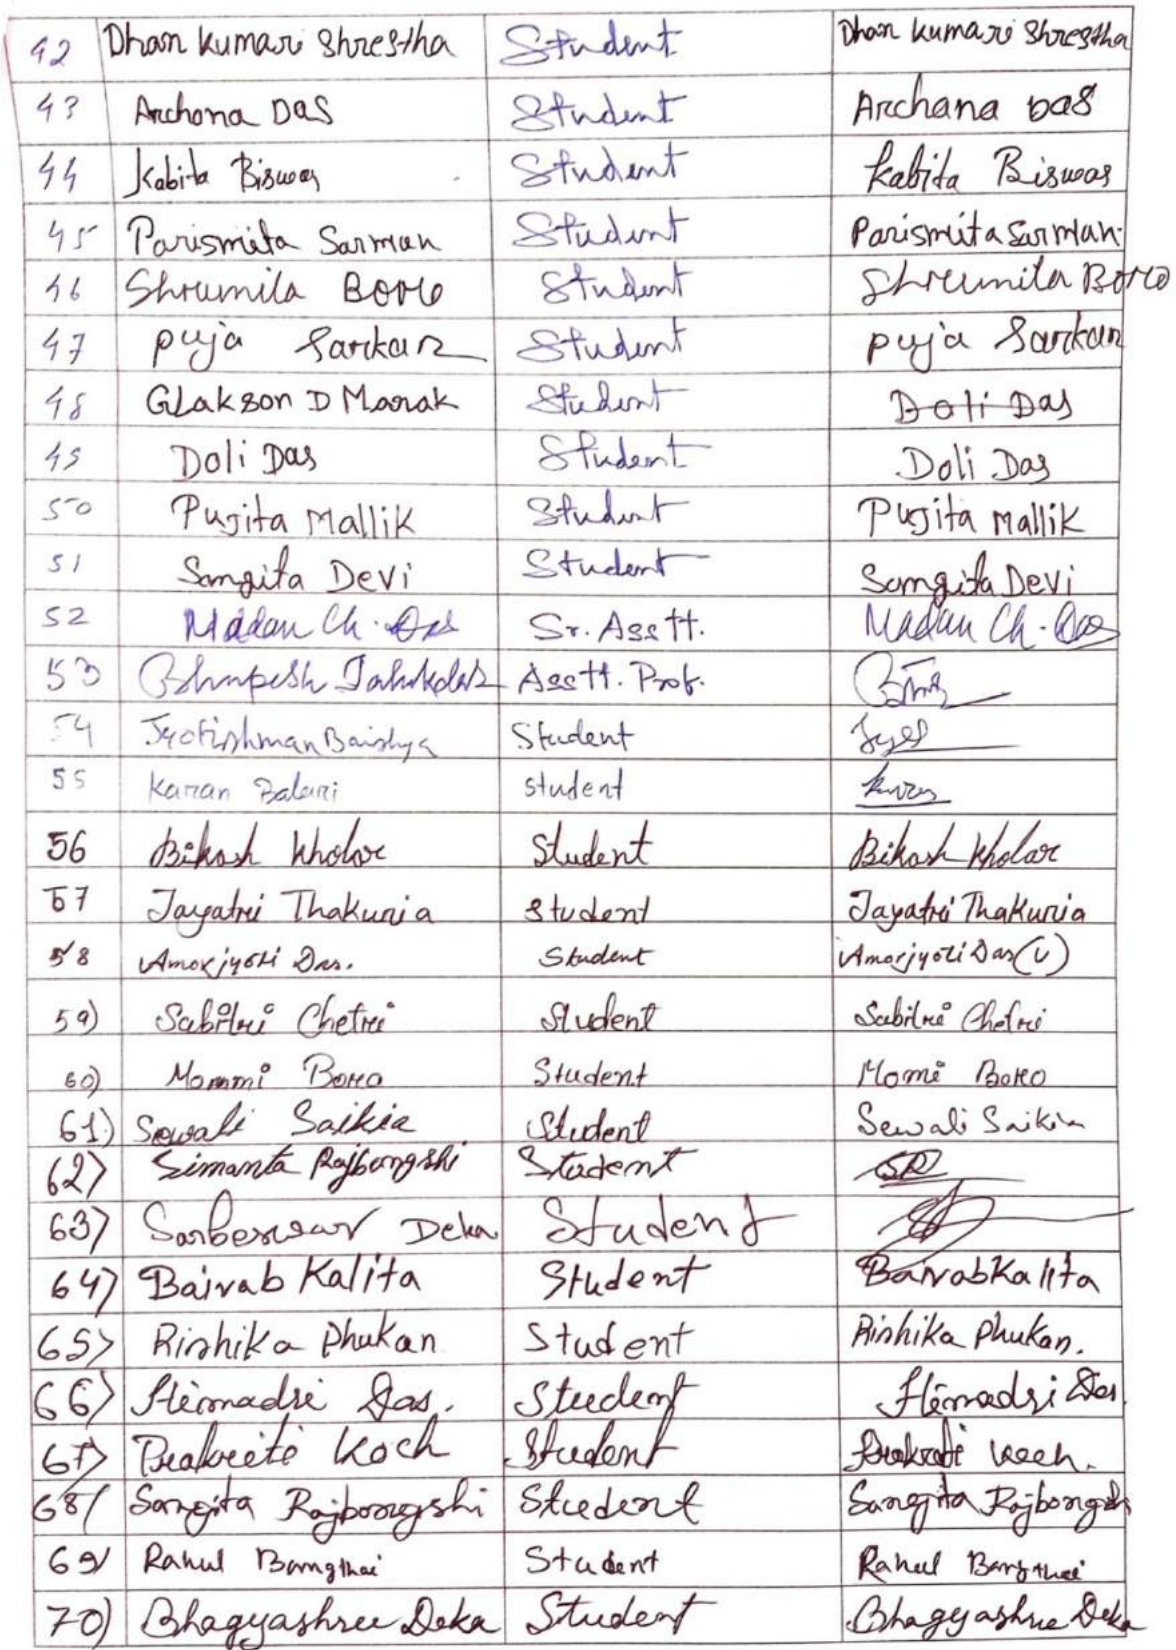 42 Dhan Kumari Shrestha Student Dhan Kumari Shrestha
43 Archana Das Student Archana Das
44 Kabita Biswas Student Kabita Biswas
45 Parismita Sarman Student Parismita Sarman
46 Shrumila Boro Student Shrumila Boro
47 Puja Sarkar Student Puja Sarkar
48 Glakson D Marak Student Doli Das
49 Doli Das Student Doli Das
50 Pujita Mallik Student Pujita Mallik
51 Sangita Devi Student Sangita Devi
52 Madan Ch. Das Sr. Asstt. Madan Ch. Das
53 Bhupesh Asstt. Prof.
54 Jyotishman Baishya Student
55 Karan Student
56 Bikash Kholar Student Bikash Kholar
57 Jayatri Thakuria Student Jayatri Thakuria
58 Amarjyoti Das. Student Amarjyoti Das (U)
59) Sabitri Chetri Student Sabitri Chetri
60) Mommi Boro Student Momi Boro
61) Sewali Saikia Student Sewali Saikia
62) Simanta Rajbongshi Student SR
63) Sarbeswar Deka Student
64) Bairab Kalita Student Bairab Kalita
65) Rishika Phukan Student Rishika Phukan.
66) Himadri Das. Student Himadri Das
67) Koch Student Koch.
68) Sangita Rajbongshi Student Sangita Rajbongshi
69) Rahul Bangthai Student Rahul Bangthai
70) Bhagyashree Deka Student Bhagyashree Deka